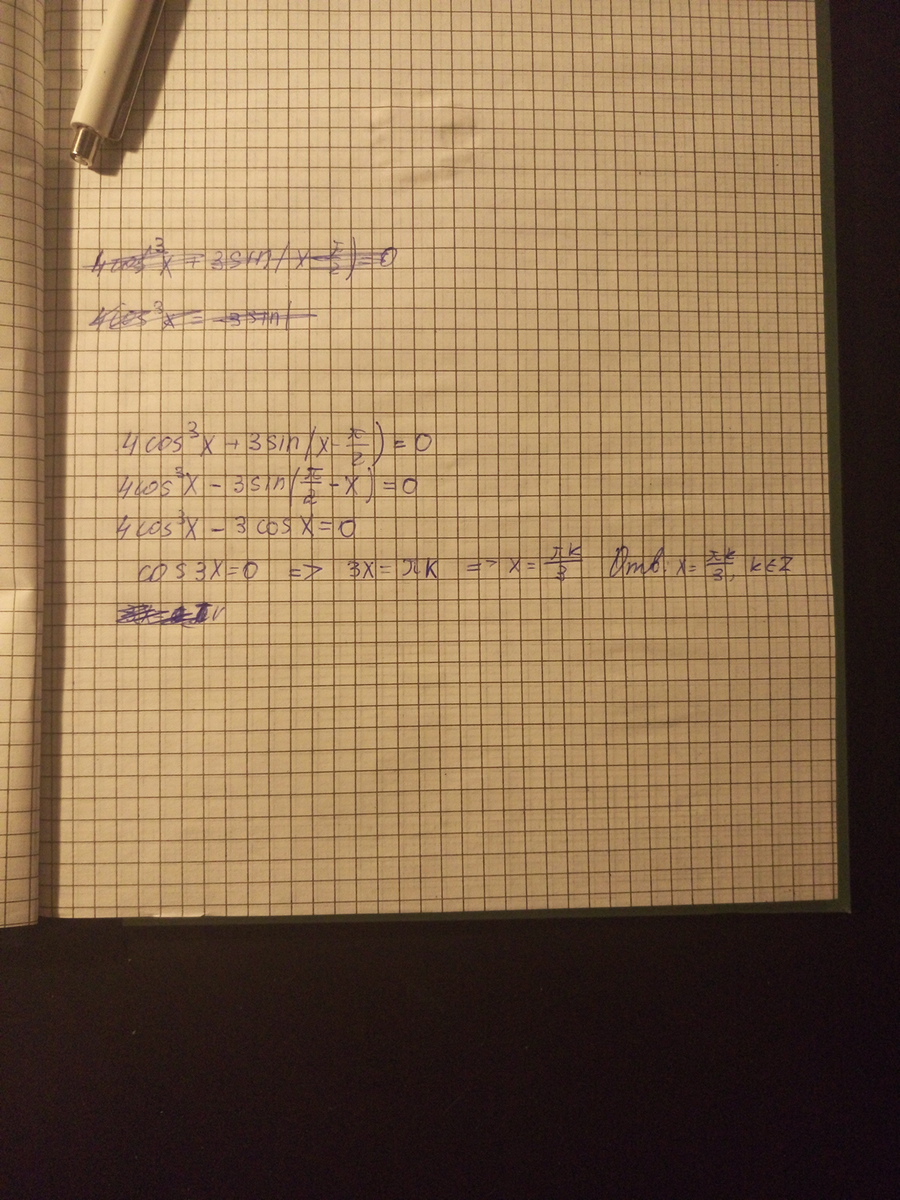 4cos³x + 3sin(x-π/2)=0
4cos³x = -3sin(
4cos³x + 3sin(x-π/2)=0
4cos³x - 3sin(π/2-x)=0
4cos³x - 3cosx=0
cos3x=0 => 3x=πk => x=πk/3 Отв: x=πk/3, k∈Z